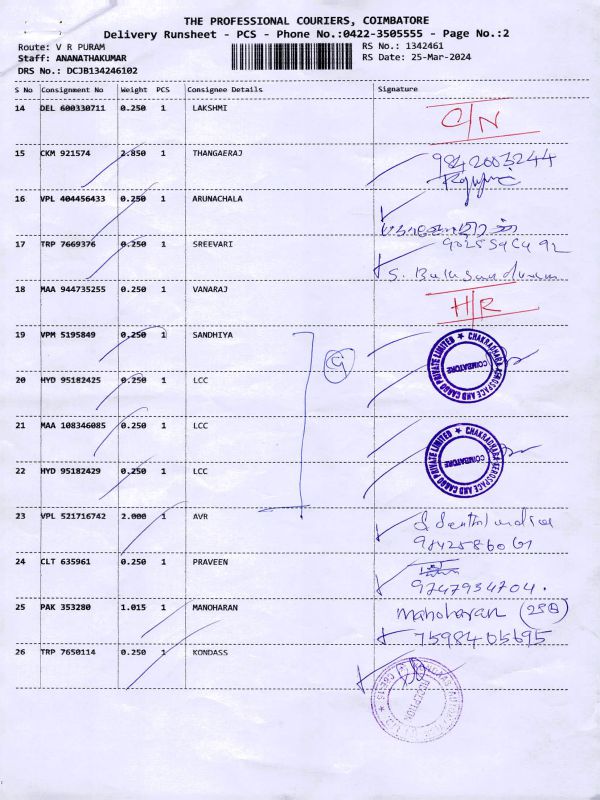 THE PROFESSIONAL COURIERS, COIMBATORE
Delivery Runsheet - PCS - Phone No.:0422-3505555 - Page No.:2
Route: V R PURAM
RS No.: 1342461
Staff: ANANATHAKUMAR
RS Date: 25-Mar-2024
DRS No.: DCJB134246102
S No Consignment No Weight PCS Consignee Details Signature
14 DEL 600330711 0.250 1 LAKSHMI C/N
15 CKM 921574 2.850 1 THANGAERAJ 9842003244
16 VPL 404456433 0.250 1 ARUNACHALA
17 TRP 7669376 0.250 1 SREEVARI
18 MAA 944735255 0.250 1 VANARAJ H/R
19 VPM 5195849 0.250 1 SANDHIYA
CHAKRADHARA AEROSPACE AND CARGO PRIVATE LIMITED ★ COIMBATORE
20 HYD 95182425 0.250 1 LCC
21 MAA 108346085 0.250 1 LCC
CHAKRADHARA AEROSPACE AND CARGO PRIVATE LIMITED ★ COIMBATORE
22 HYD 95182429 0.250 1 LCC
23 VPL 521716742 2.000 1 AVR
9842586061
24 CLT 635961 0.250 1 PRAVEEN
9747934704.
25 PAK 353280 1.015 1 MANOHARAN Manoharan
7598405695
26 TRP 7650114 0.250 1 KONDASS
RECEPTION